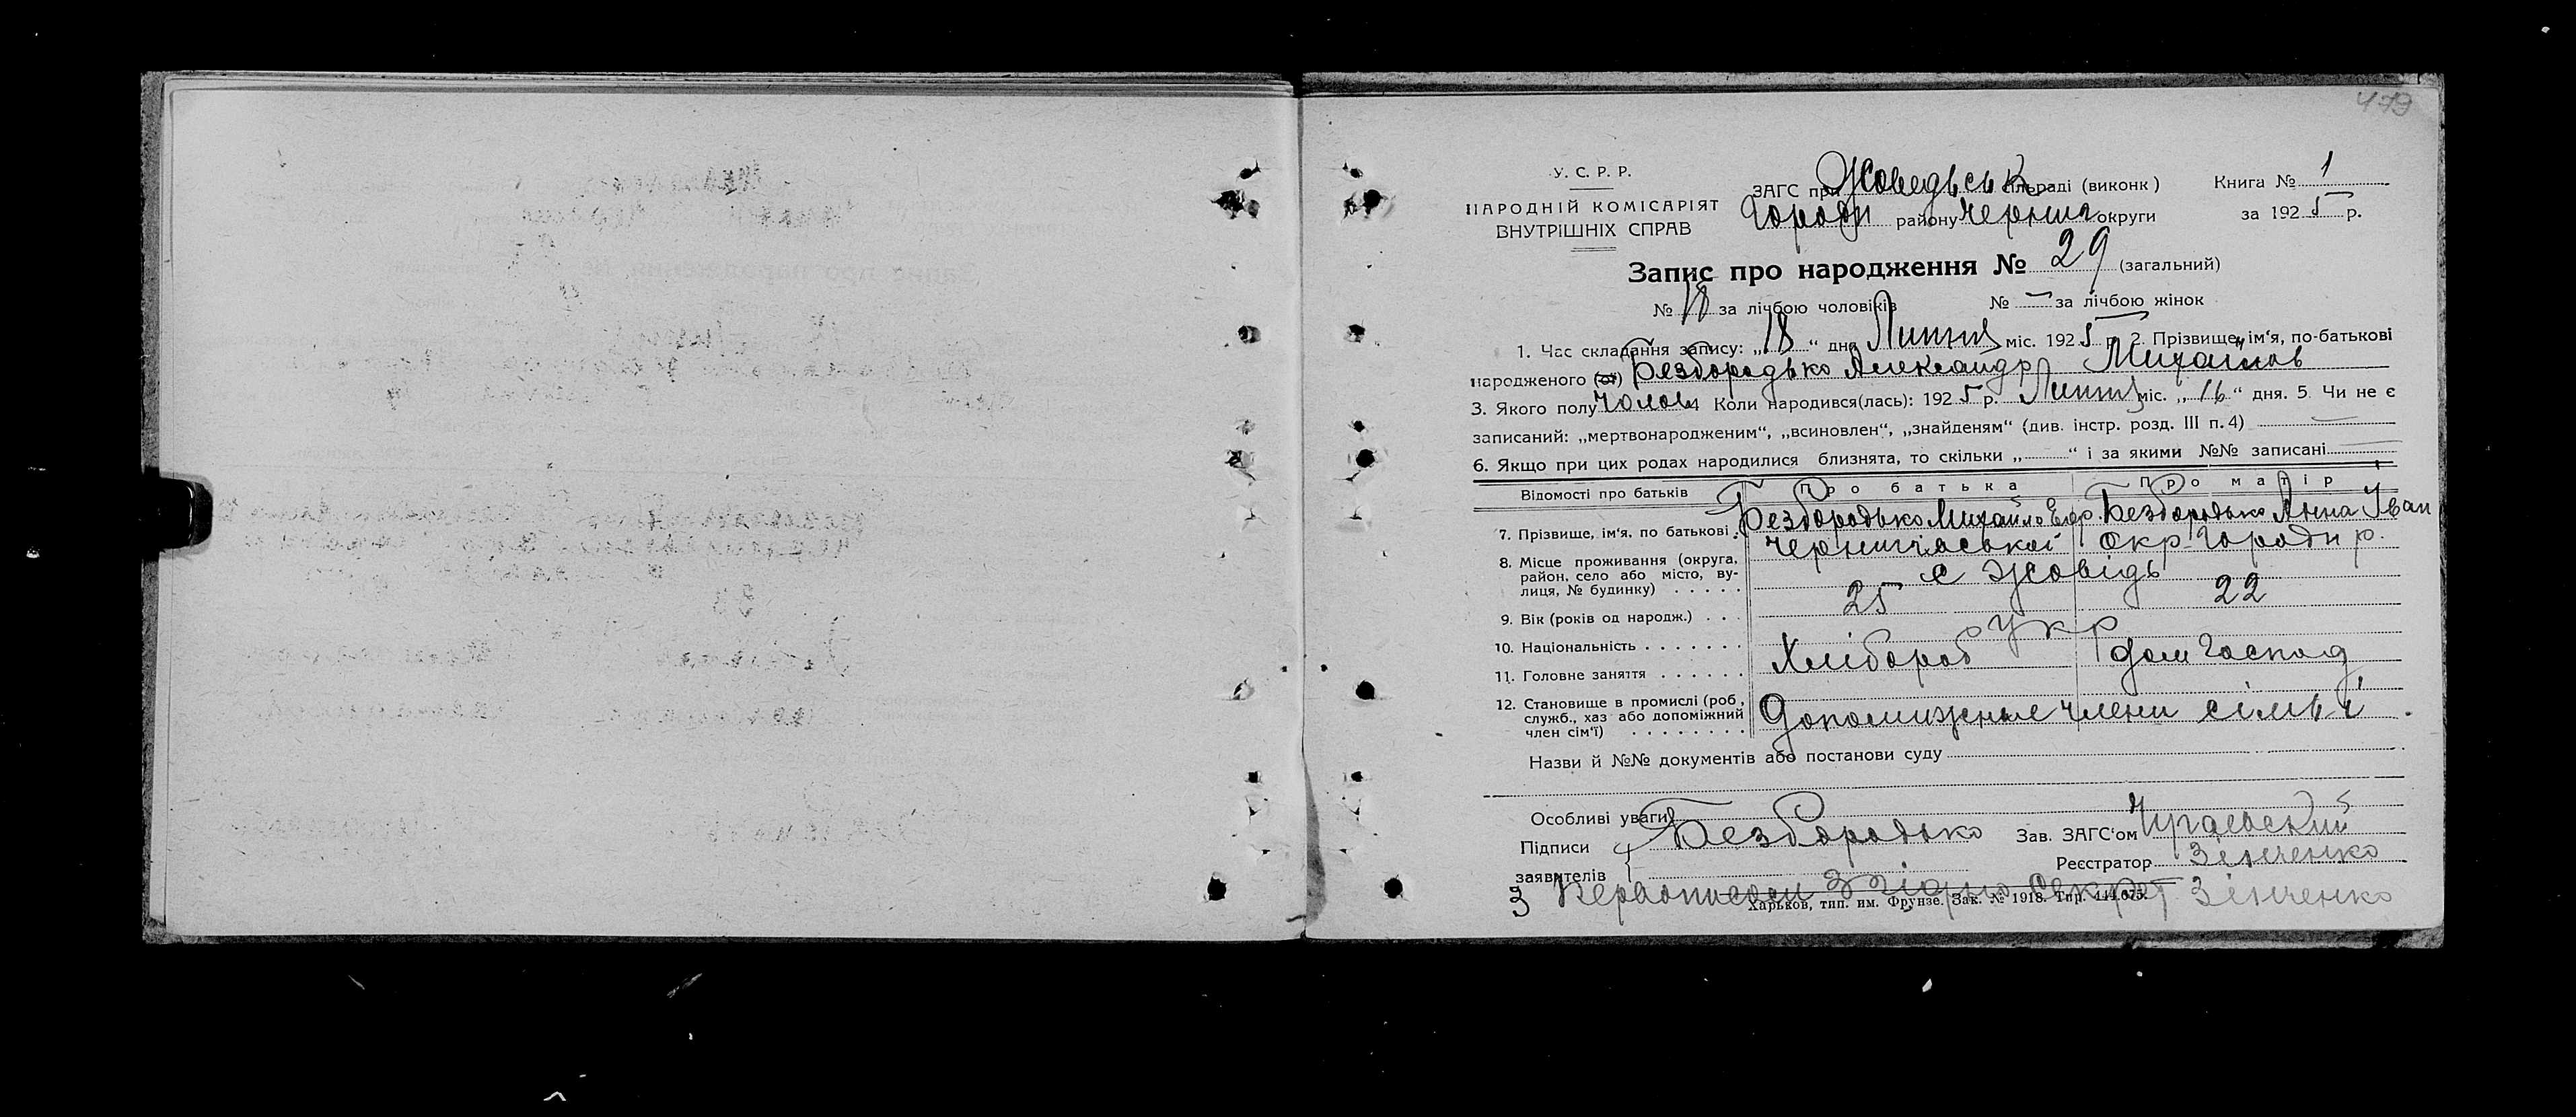 479
У. С. Р. Р.
НАРОДНІЙ КОМІСАРІЯТ
ВНУТРІШНІХ СПРАВ
ЗАГС при Жоведьськ сільраді (виконк)
Городн району Черниг округи
Книга № 1
за 1925 р.
Запис про народження № 29 (загальний)
№ 18 за лічбою чоловіків № — за лічбою жінок
1. Час складання запису: „18" дня Липня міс. 1925 р. 2. Прізвище, ім'я, по-батькові
народженого (ої) Безбородько Александр Михайлов
3. Якого полу чолов 4 Коли народився(лась): 1925 р. Липня міс. „16" дня. 5. Чи не є
записаний: „мертвонародженим", „всиновлен", „знайденям" (див. інстр. розд. III п. 4) —
6. Якщо при цих родах народилися близнята, то скільки „ " і за якими №№ записані
Відомості про батьків Про батька Про матір
7. Прізвище, ім'я, по батькові. Безбородько Михайло Безбородько Анна Іван
8. Місце проживання (округа, район, село або місто, вулиця, № будинку) Чернигівської окр. Городн р.
с Жовідь
9. Вік (років од народж.) 25 22
10. Національність Укр
11. Головне заняття Хлібороб дом господ
12. Становище в промислі (роб, служб., хаз або допоміжний член сім'ї) Допоміжные члени сімьі
Назви й №№ документів або постанови суду
Особливі уваги
Підписи заявителів Безбородько Зав. ЗАГС'ом
Реєстратор Зінченко
З Первописом Згідно Секрет Зінченко
Харьков, тип. им. Фрунзе. Зак. № 1918. Тир. 444.675.